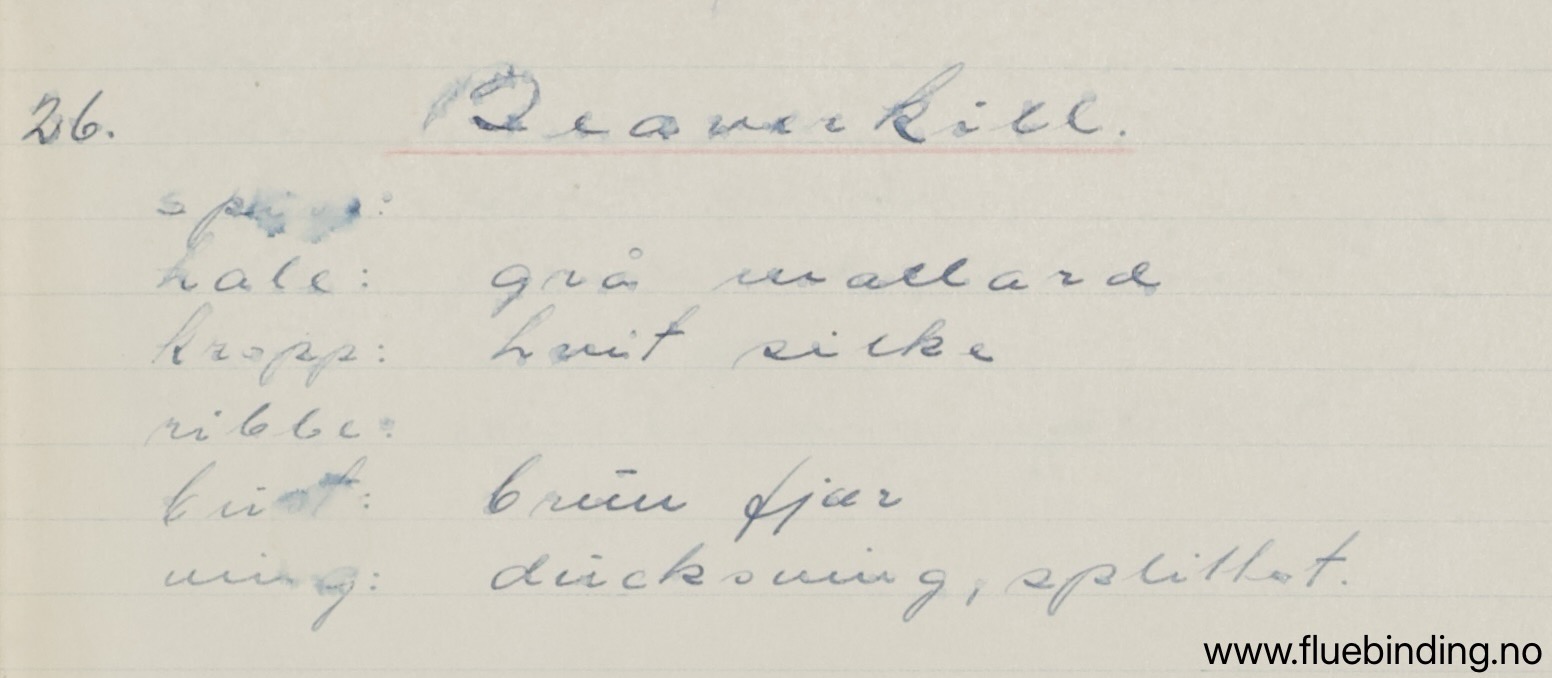 26. Beaverkill.
hale: grå mallard
kropp: hvit silke
ribbe:
bust: brun fjær
ving: ducksving, splittet.
www.fluebinding.no